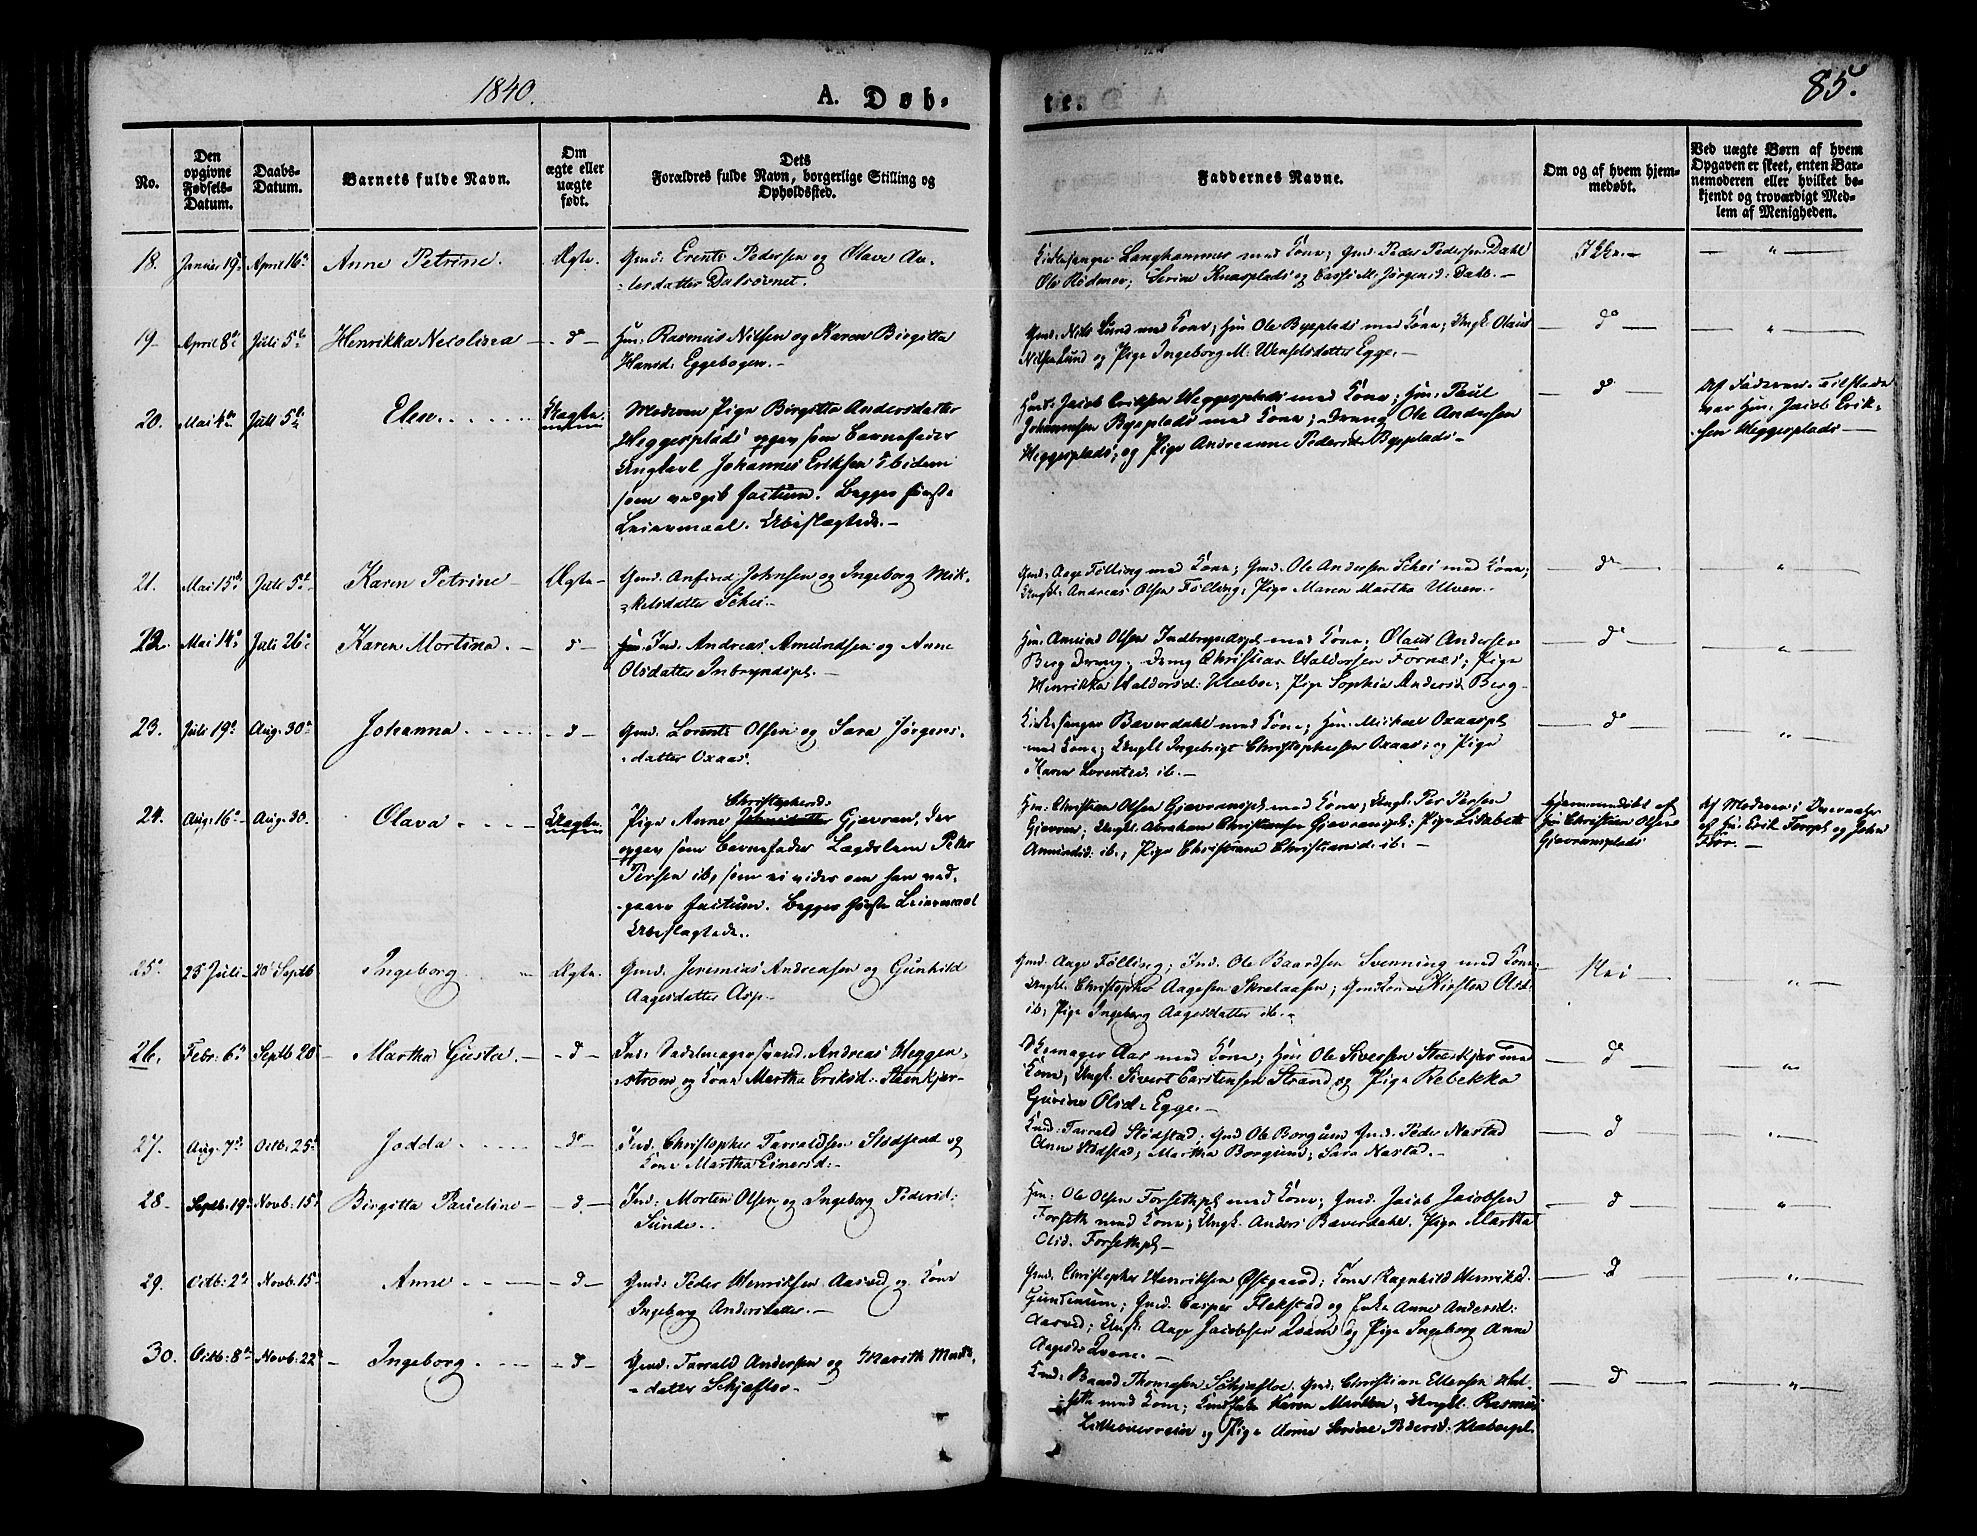 1840.
A. Døb-
te.
85.
No.
Den opgivne Fødsels-Datum.
Daabs-Datum.
Barnets fulde Navn.
Om ægte eller uægte født.
Dets Forældres fulde Navn, borgerlige Stilling og Opholdssted.
Faddernes Navne.
Om og af hvem hjemmedøbt.
Ved uægte Børn af hvem Opgaven er skeet, enten Barnemoderen eller hvilket bekjendt og troværdigt Medlem af Menigheden.
18. Januar 19 April 16 Anne Petrine. Ægte. Gmd. Erents Pedersen og Olave
datter Dalsövnet.
Kirkesanger Langhammer med Kone; Gmd. Peder Pedersen Dahl
Ole Rødmer; Serine Knæsplads og Jörgensd: Dahl. Ikke.
19 April 8 Juli 5 Henrikka Nicolina d Hm. Rasmus Nilsen og Karen Birgitta
Hansd. Eggebogen.
Gmd. Nils Lund med Kone; Hm Ole Byeplads med Kone; Ungk. Olaus
Nilsen Lund og Pige Ingeborg M: Wenselsdatter Egge. d
20. Mai 4 Juli 5 Elen. Uægte. Moderen Pige Birgitta Andersdatter
Heggesplads opgav som Barnefader
Ungkarl Johannes Eriksen Ibidem
som vedgik factum. Begges første
Leiermaal. Ubeslægtede.
Hmd. Jacob Eriksen Heggesplads med Kone; Hm. Paul
Johannesen Byeplads med Kone; Dreng Ole Andersen
Heggesplads; og Pige Andreanne Pedersd. Byeplads d
Af Faderen. Tilstede
var Hm. Jacob Erik-
sen Heggesplads
21. Mai 15 Juli 5 Karen Petrine Ægte Gmd. Anfind Johnsen og Ingeborg Mik-
kelsdatter Schei.
Gmd. Aage Fölling med Kone; Gmd. Ole Andersen Schei med Kone;
Ungk. Andreas Olsen Fölling; Pige Maren Martha Ulven. d
22. Mai 14 Juli 26 Karen Mortina. d Ind. Andreas Amundsen og Anne
Olsdatter Inbryndspl.
Hm. Amund Olsen Indbryndspl. med Kone; Olaus Andersen
Berg Dreng; Dreng Christian Haldorsen Fornes; Pige
Henrikka Haldorsd: Klæboe; Pige Sophia Andersd. Berg d
23. Juli 19 Aug. 30 Johanna. d Gmd. Lorents Olsen og Sara Jörgens-
datter Oxaas.
Kirkesanger Baverdahl med Kone; Hm. Michael Oxaaspl.
med Kone; Ungkl Ingebrigt Christophersen Oxaas; og Pige
Karen Lorentsd. ib. d
24. Aug. 16 Aug. 30 Olava. Uægte. Christophersd.
Pige Anne Johnsdatter Gjævran, der
opgav som Barnefader Lægdslem Peter
Persen ib, som ei vides om han ved-
gaaer factum. Begges første Leiermaal
Ubeslægtede.
Hm: Christian Olsen Gjævranspl. med Kone; Ungk. Per Persen
Gjævran; Ungk. Abraham Christiansen Gjævranspl; Pige Lisbeth
Amundsd: ib., Pige Christiane Christiansd. ib.
Hjemmedöbt af
Christian Olsen
Gjævransplads
Af Moderen i Overvær
af Hm. Erik Forspl og John
For.
25. 25 Juli 20 Septb Ingeborg Ægte. Gmd. Jeremias Andreasen og Gunhild
Aagesdatter Asp.
Gmd. Aage Fölling; Ind. Ole Baardsen Svenning med Kone
Ungk. Christopher Aagesen Skrataasen; Gmd Kone Kirsten Olsd.
ib; Pige Ingeborg Aagesdatter ib. Nei
26. Febr: 6 Septb 20 Martha Gusta d Ind. Sadelmagersvend. Andreas Heggen-
strøm og Kone Martha Eriksd: Steenkjær
med Kone; Hm Ole Sivertsen Steenkjær med
Kone, Ungk. Sivert Carstensen Strand og Pige Rebekka
Gurine Olsd. Egge. d
27. Aug. 7 Octb. 25 Jodda d Ind. Christopher Tarraldsen Stödstad og
Kone Martha Einersd:
Gmd. Tarrald Stödstad; Gmd Ole Borgum Gmd. Peder Nastad
Anne Stödstad; Martha Borgum; Sara Nastad. d
28. Septb. 19 Novb: 15 Birgitta Pauline d. Ind: Morten Olsen og Ingeborg Pedersd:
Sunde.
Hm: Ole Olsen Forsethpl med Kone; Gmd. Jacob Jacobsen
Forseth med Kone; Ungk. Anders Baverdahl, Pige Martha
Olsd. Forsethpl d
29. Octb: 2 Novb. 15 Anne d Gmd. Peder Henriksen Aasved og Kone
Ingeborg Andersdatter.
Gmd. Christopher Henriksen Østgaard; Kone Ragnhild Henriksd.
Gmd. Casper Flekstad og Enke Anne Andersd:
Aasved; Ungk. Aage Jacobsen Qvam og Pige Ingeborg Anne
Aagesd. Qvam. d
30. Octb: 8 Novb: 22 Ingeborg. d Gmd. Tarrald Andersen og Marith
datter Schjefloe
Gmd. Baard Thomesen Schjefloe, Gmd. Christian Ellevsen
med Kone; Karen Martha, Ungkl. Rasmus
og Pige Serine Pedersd: d